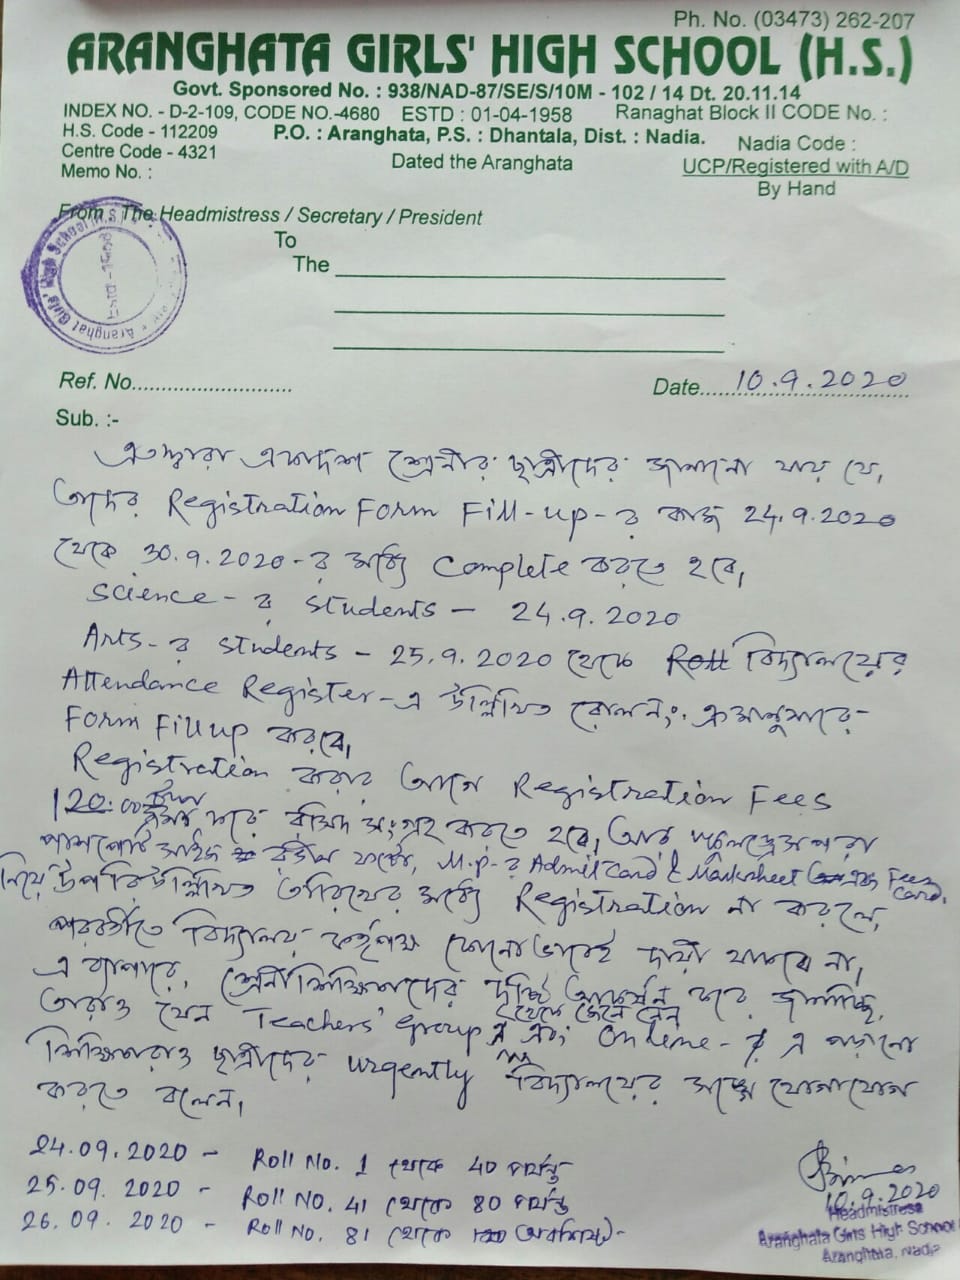 Ph. No. (03473) 262-207
ARANGHATA GIRLS' HIGH SCHOOL (H.S.)
Govt. Sponsored No. : 938/NAD-87/SE/S/10M - 102 / 14 Dt. 20.11.14
INDEX NO. - D-2-109, CODE NO.-4680 ESTD : 01-04-1958 Ranaghat Block II CODE No. :
H.S. Code - 112209 P.O. : Aranghata, P.S. : Dhantala, Dist. : Nadia. Nadia Code :
Centre Code - 4321 Dated the Aranghata UCP/Registered with A/D
Memo No. : By Hand
From The Headmistress / Secretary / President
To
The
Ref. No.
Date 10.9.2020
Sub. :-
এতদ্বারা একাদশ শ্রেনীর ছাত্রীদের জানানো যায় যে,
তাদের Registration Form Fill-up-র কাজ 24.9.2020
থেকে 30.9.2020-র মধ্যে Complete করতে হবে।
Science-র students - 24.9.2020
Arts-র students - 25.9.2020 থেকে বিদ্যালয়ের
Attendance Register-এ উল্লিখিত রোল নং. ক্রমানুসারে-
Form Fill up করবে।
Registration করার আগে Registration Fees
120.00 টাকা রসিদ সংগ্রহ করতে হবে। আর
পাসপোর্ট সাইজ রঙীন ফটো, M.P.-র Admit Card & Marksheet এবং Fees Card.
নিয়ে উপরিউল্লিখিত তারিখের মধ্যে Registration না করলে,
পরবর্তীতে বিদ্যালয় কর্তৃপক্ষ কোনোভাবেই দায়ী থাকবে না।
এ ব্যাপারে, শ্রেনীশিক্ষিকাদের দৃষ্টি আকর্ষন করে জানাচ্ছি,
তারাও যেন Teachers' group থেকে জেনে নেন এবং Online-এ পড়ানো
শিক্ষিকারাও ছাত্রীদের urgently বিদ্যালয়ের সঙ্গে যোগাযোগ
করতে বলেন।
24.09.2020 - Roll No. 1 থেকে 40 পর্যন্ত
25.09.2020 - Roll No. 41 থেকে 80 পর্যন্ত
26.09.2020 - Roll No. 81 থেকে অবশিষ্ট-
10.9.2020
Headmistress
Aranghata Girls High School
Aranghata, Nadia